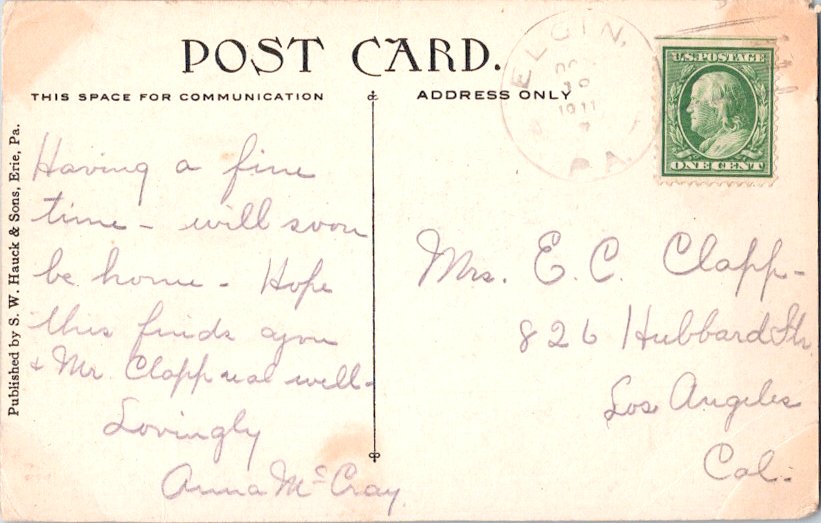 POST CARD.
THIS SPACE FOR COMMUNICATION
ADDRESS ONLY
ELGIN,
1911
PA.
U.S. POSTAGE
ONE CENT
Published by S. W. Hauck & Sons, Erie, Pa.
Having a fine
time - will soon
be home - Hope
this finds you
& Mr. Clapp real well -
Lovingly
Anna McCray.
Mrs. E. C. Clapp -
826 Hubbard Str.
Los Angeles
Cal.